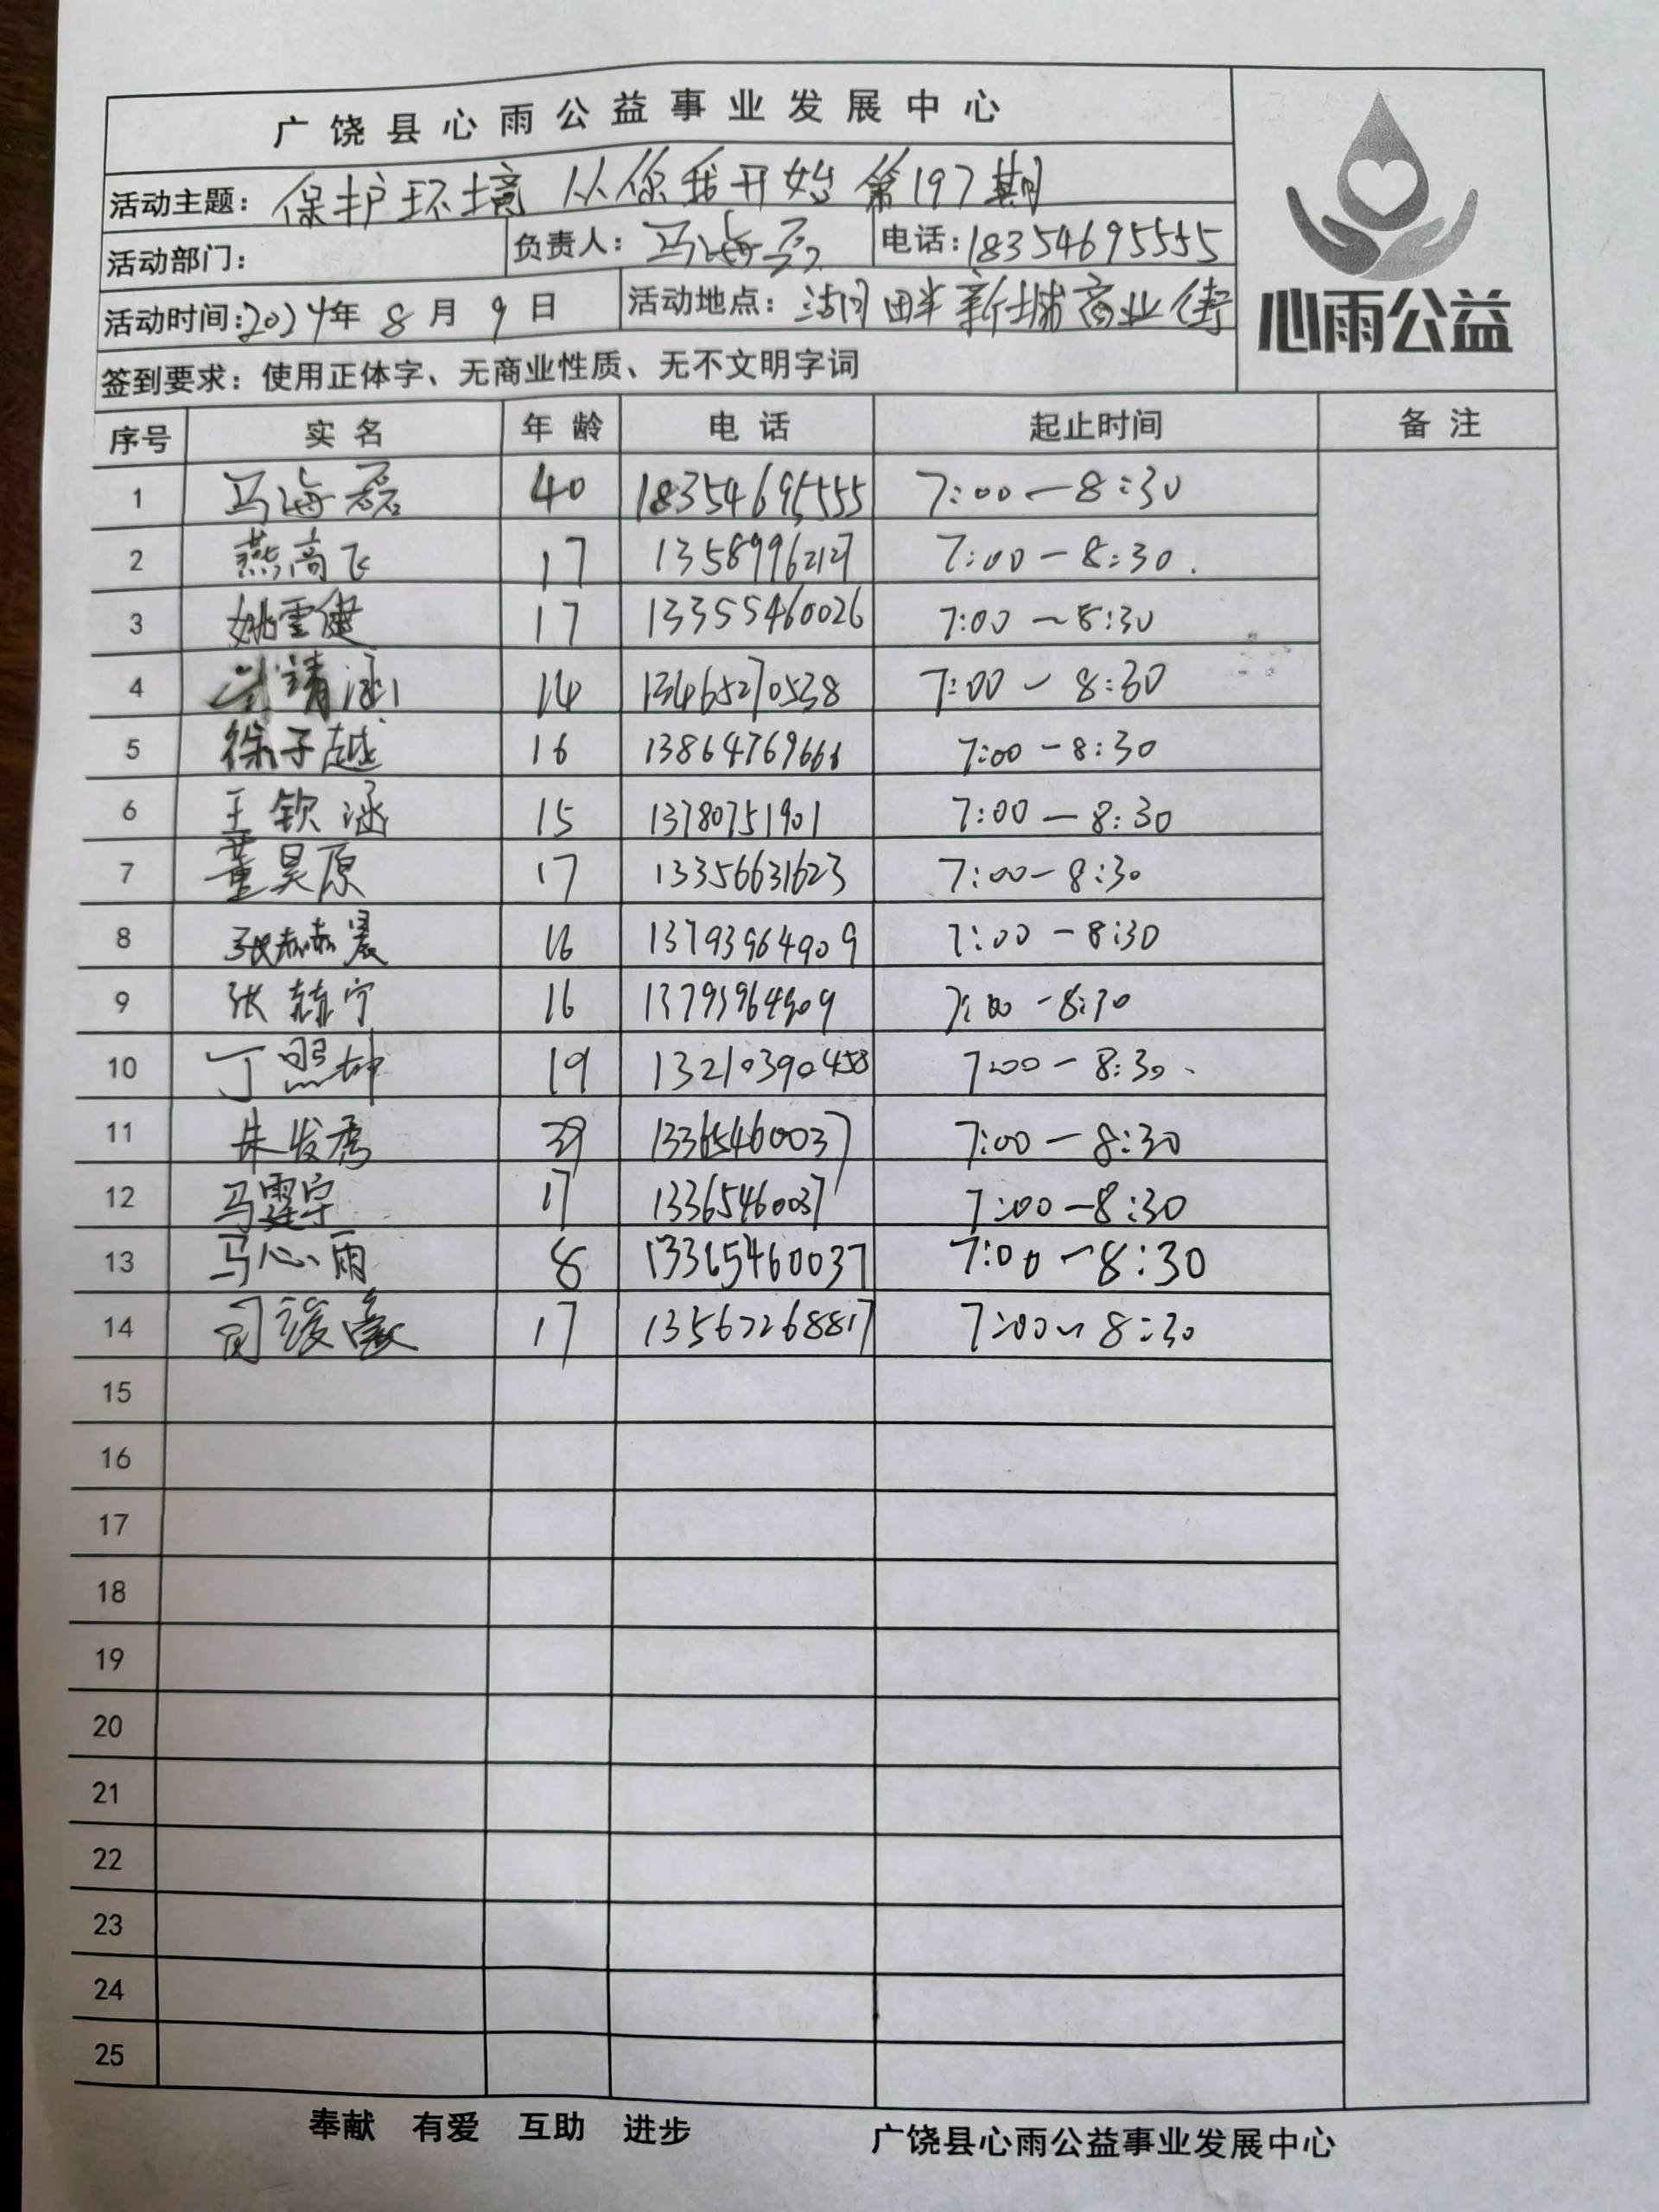 广饶县心雨公益事业发展中心
活动主题：保护环境 从你我开始 第197期
活动部门：
负责人：马海磊 电话：18354695555
活动时间：2024年8月9日 活动地点：湖畔新城商业街
签到要求：使用正体字、无商业性质、无不文明字词
心雨公益
序号 实名 年龄 电话 起止时间 备注
1 马海磊 40 18354695555 7:00—8:30
2 燕高飞 17 13589962127 7:00—8:30.
3 姚雪健 17 13355460026 7:00～8:30
4 靖涵 14 13465270538 7:00～8:30
5 徐子越 16 13864769666 7:00—8:30
6 王钦涵 15 13780751901 7:00—8:30
7 董昊原 17 13356631623 7:00—8:30
8 张赫晨 16 13793964909 7:00—8:30
9 张赫宁 16 13793964909 7:00—8:30
10 丁照坤 19 13210390458 7:00—8:30
11 朱发秀 39 13365460037 7:00—8:30
12 马霆宇 17 13365460037 7:00—8:30
13 马心雨 8 13365460037 7:00—8:30
14 17 13562268817 7:00～8:30
15
16
17
18
19
20
21
22
23
24
25
奉献 有爱 互助 进步 广饶县心雨公益事业发展中心